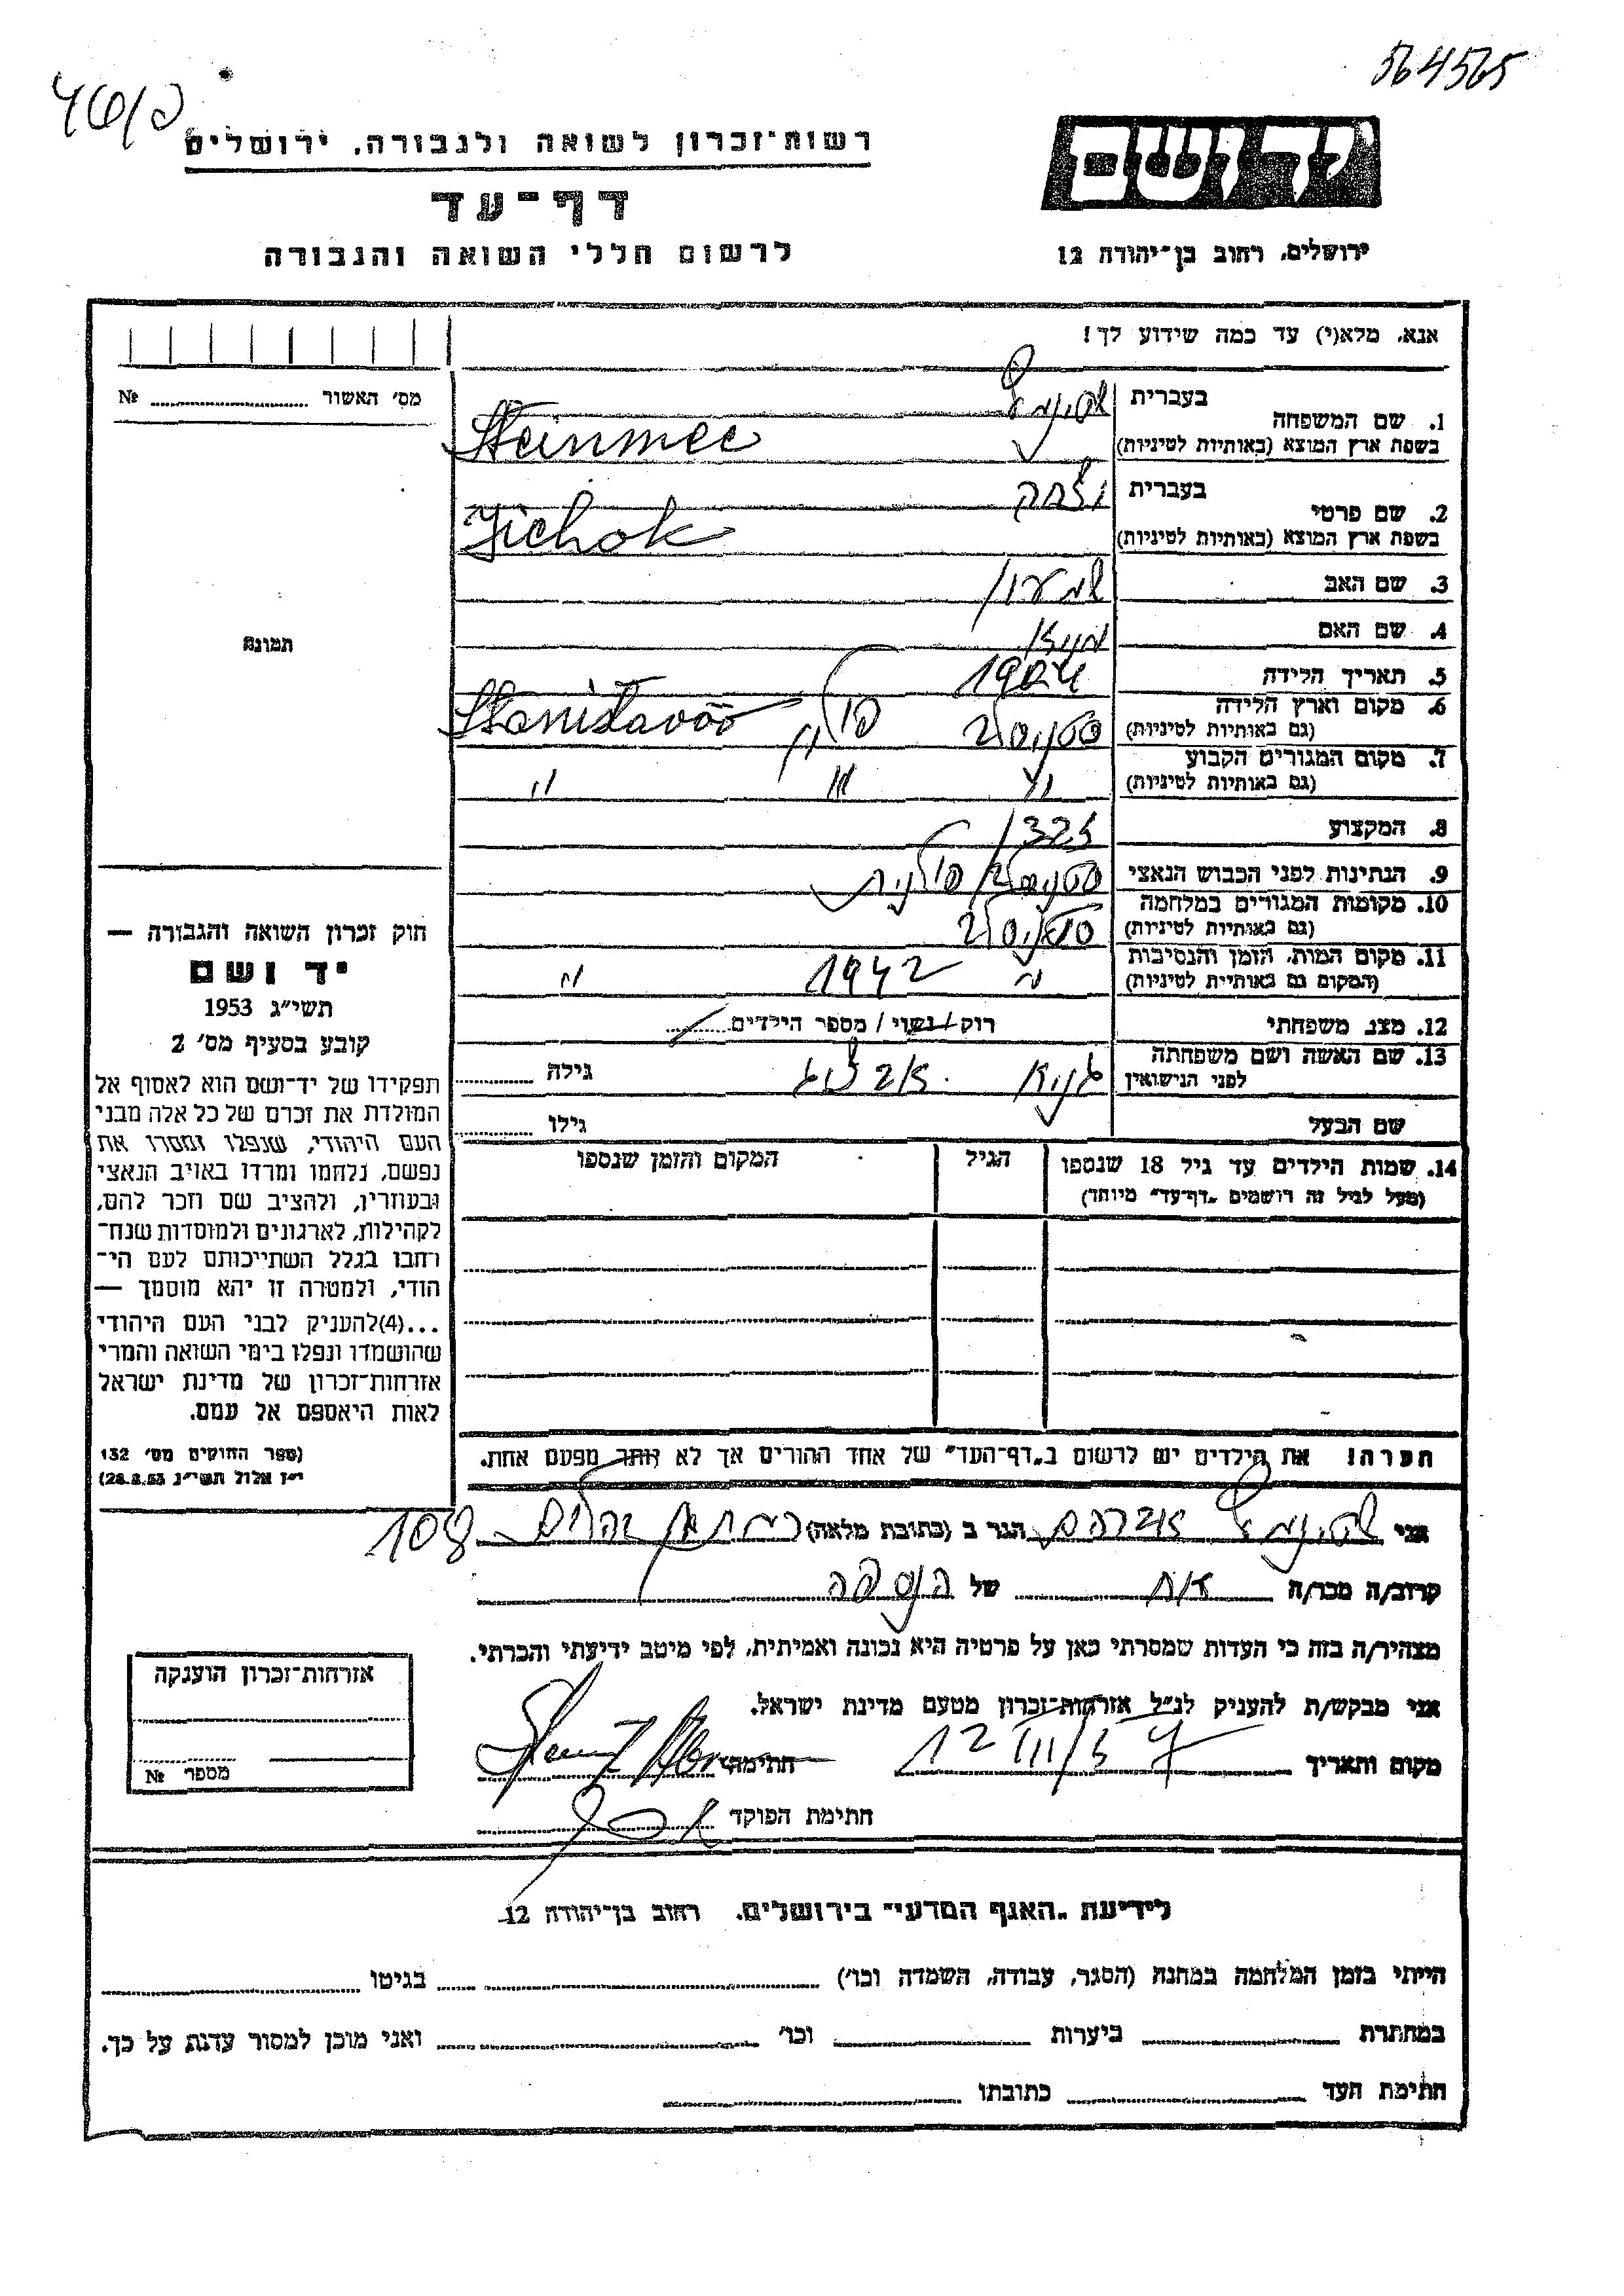 564565
יד ושם
ירושלים, רחוב בן־יהודה 12
רשות־זכרון לשואה ולגבורה, ירושלים
דף־עד
לרשום חללי השואה והגבורה
אנא, מלא(י) עד כמה שידוע לך!
1. שם המשפחה
בעברית
בשפת ארץ המוצא (באותיות לטיניות) Steinmec
2. שם פרטי
בעברית יצחק
בשפת ארץ המוצא (באותיות לטיניות) Jichok
3. שם האב שמעון
4. שם האם
5. תאריך הלידה 1904
6. מקום וארץ הלידה
(גם באותיות לטיניות) פולין
7. מקום המגורים הקבוע
(גם באותיות לטיניות) " " "
8. המקצוע
9. הנתינות לפני הכבוש הנאצי פולנית
10. מקומות המגורים במלחמה
(גם באותיות לטיניות)
11. מקום המות, הזמן והנסיבות
(המקום גם באותיות לטיניות) " 1942 "
12. מצב משפחתי רוק / נשוי / מספר הילדים
13. שם האשה ושם משפחתה
לפני הנישואין
גילה
שם הבעל
גילו
14. שמות הילדים עד גיל 18 שנספו
(מעל לגיל זה רושמים "דף־עד" מיוחד)
הגיל
המקום והזמן שנספו
הערה! את הילדים יש לרשום ב"דף־העד" של אחד ההורים אך לא יותר מפעם אחת.
מס׳ האשור № 
תמונה
חוק זכרון השואה והגבורה —
יד ושם
תשי״ג 1953
קובע בסעיף מס׳ 2
תפקידו של יד־ושם הוא לאסוף אל
המולדת את זכרם של כל אלה מבני
העם היהודי, שנפלו ומסרו את
נפשם, נלחמו ומרדו באויב הנאצי
ובעוזריו, ולהציב שם וזכר להם,
לקהילות, לארגונים ולמוסדות שנח־
רחבו בגלל השתייכותם לעם הי־
הודי, ולמטרה זו יהא מוסמך —
...(4)להעניק לבני העם היהודי
שהושמדו ונפלו בימי השואה והמרי
אזרחות־זכרון של מדינת ישראל
לאות היאספם אל עמם.
(ספר החוקים מס׳ 132
י״ז אלול תשי״ג 28.8.53)
אני אברהם הגר ב (כתובת מלאה) 108
קרוב/ה מכר/ה אח של הנספה
מצהיר/ה בזה כי העדות שמסרתי כאן על פרטיה היא נכונה ואמיתית, לפי מיטב ידיעתי והכרתי.
אני מבקש/ת להעניק לנ״ל אזרחות־זכרון מטעם מדינת ישראל.
מקום ותאריך 12/III/57 חתימה
חתימת הפוקד
אזרחות־זכרון הוענקה
מספר №
לידיעת "האגף המדעי" בירושלים, רחוב בן־יהודה 12
הייתי בזמן המלחמה במחנה (הסגר, עבודה, השמדה וכו׳) בגיטו
במחתרת ביערות וכו׳ ואני מוכן למסור עדות על כך.
חתימת העד כתובתו